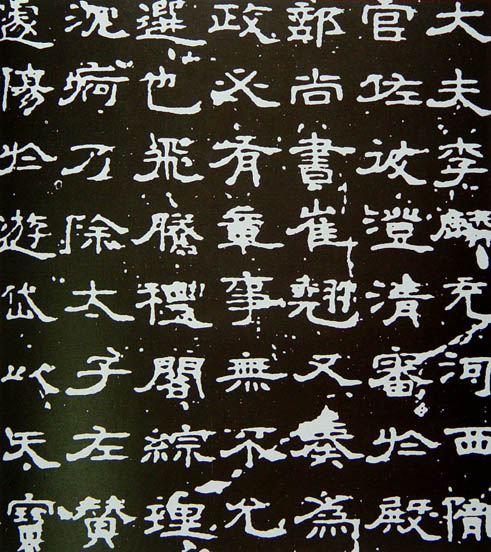 大夫李麟充河西
官佐彼澄清審於殿
部尚書崔翹又奏為
政必有章事無不允
選也飛騰禮閣綜理
沈痾乃除太子左贊
遽傷於遊岱以天寶